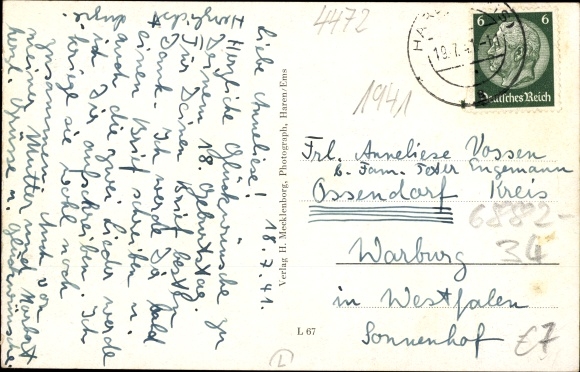 4472
1941
HA
19.7.41
6 6
Deutsches Reich
18.7.41.
Liebe Anneliese!
Herzliche Glückwünsche zu
Deinem 18. Geburtstag.
Für Deinen Brief besten
Dank. Ich werde Dir bald
einen Brief schreiben u.
auch die zwei Lieder werde
ich Dir aufschreiben. Ich
kriege sie wohl noch
zusammen. Auch von
meiner Mutter und Norbert
herzl. Grüsse u. Glückwünsche.
Herzlichst
Verlag H. Mecklenborg, Photograph, Haren/Ems
L 67
L
Frl. Anneliese Vossen
b. Fam. Engemann
Ossendorf Kreis
Warburg
in Westfalen
Sonnenhof
6882-
34
€7